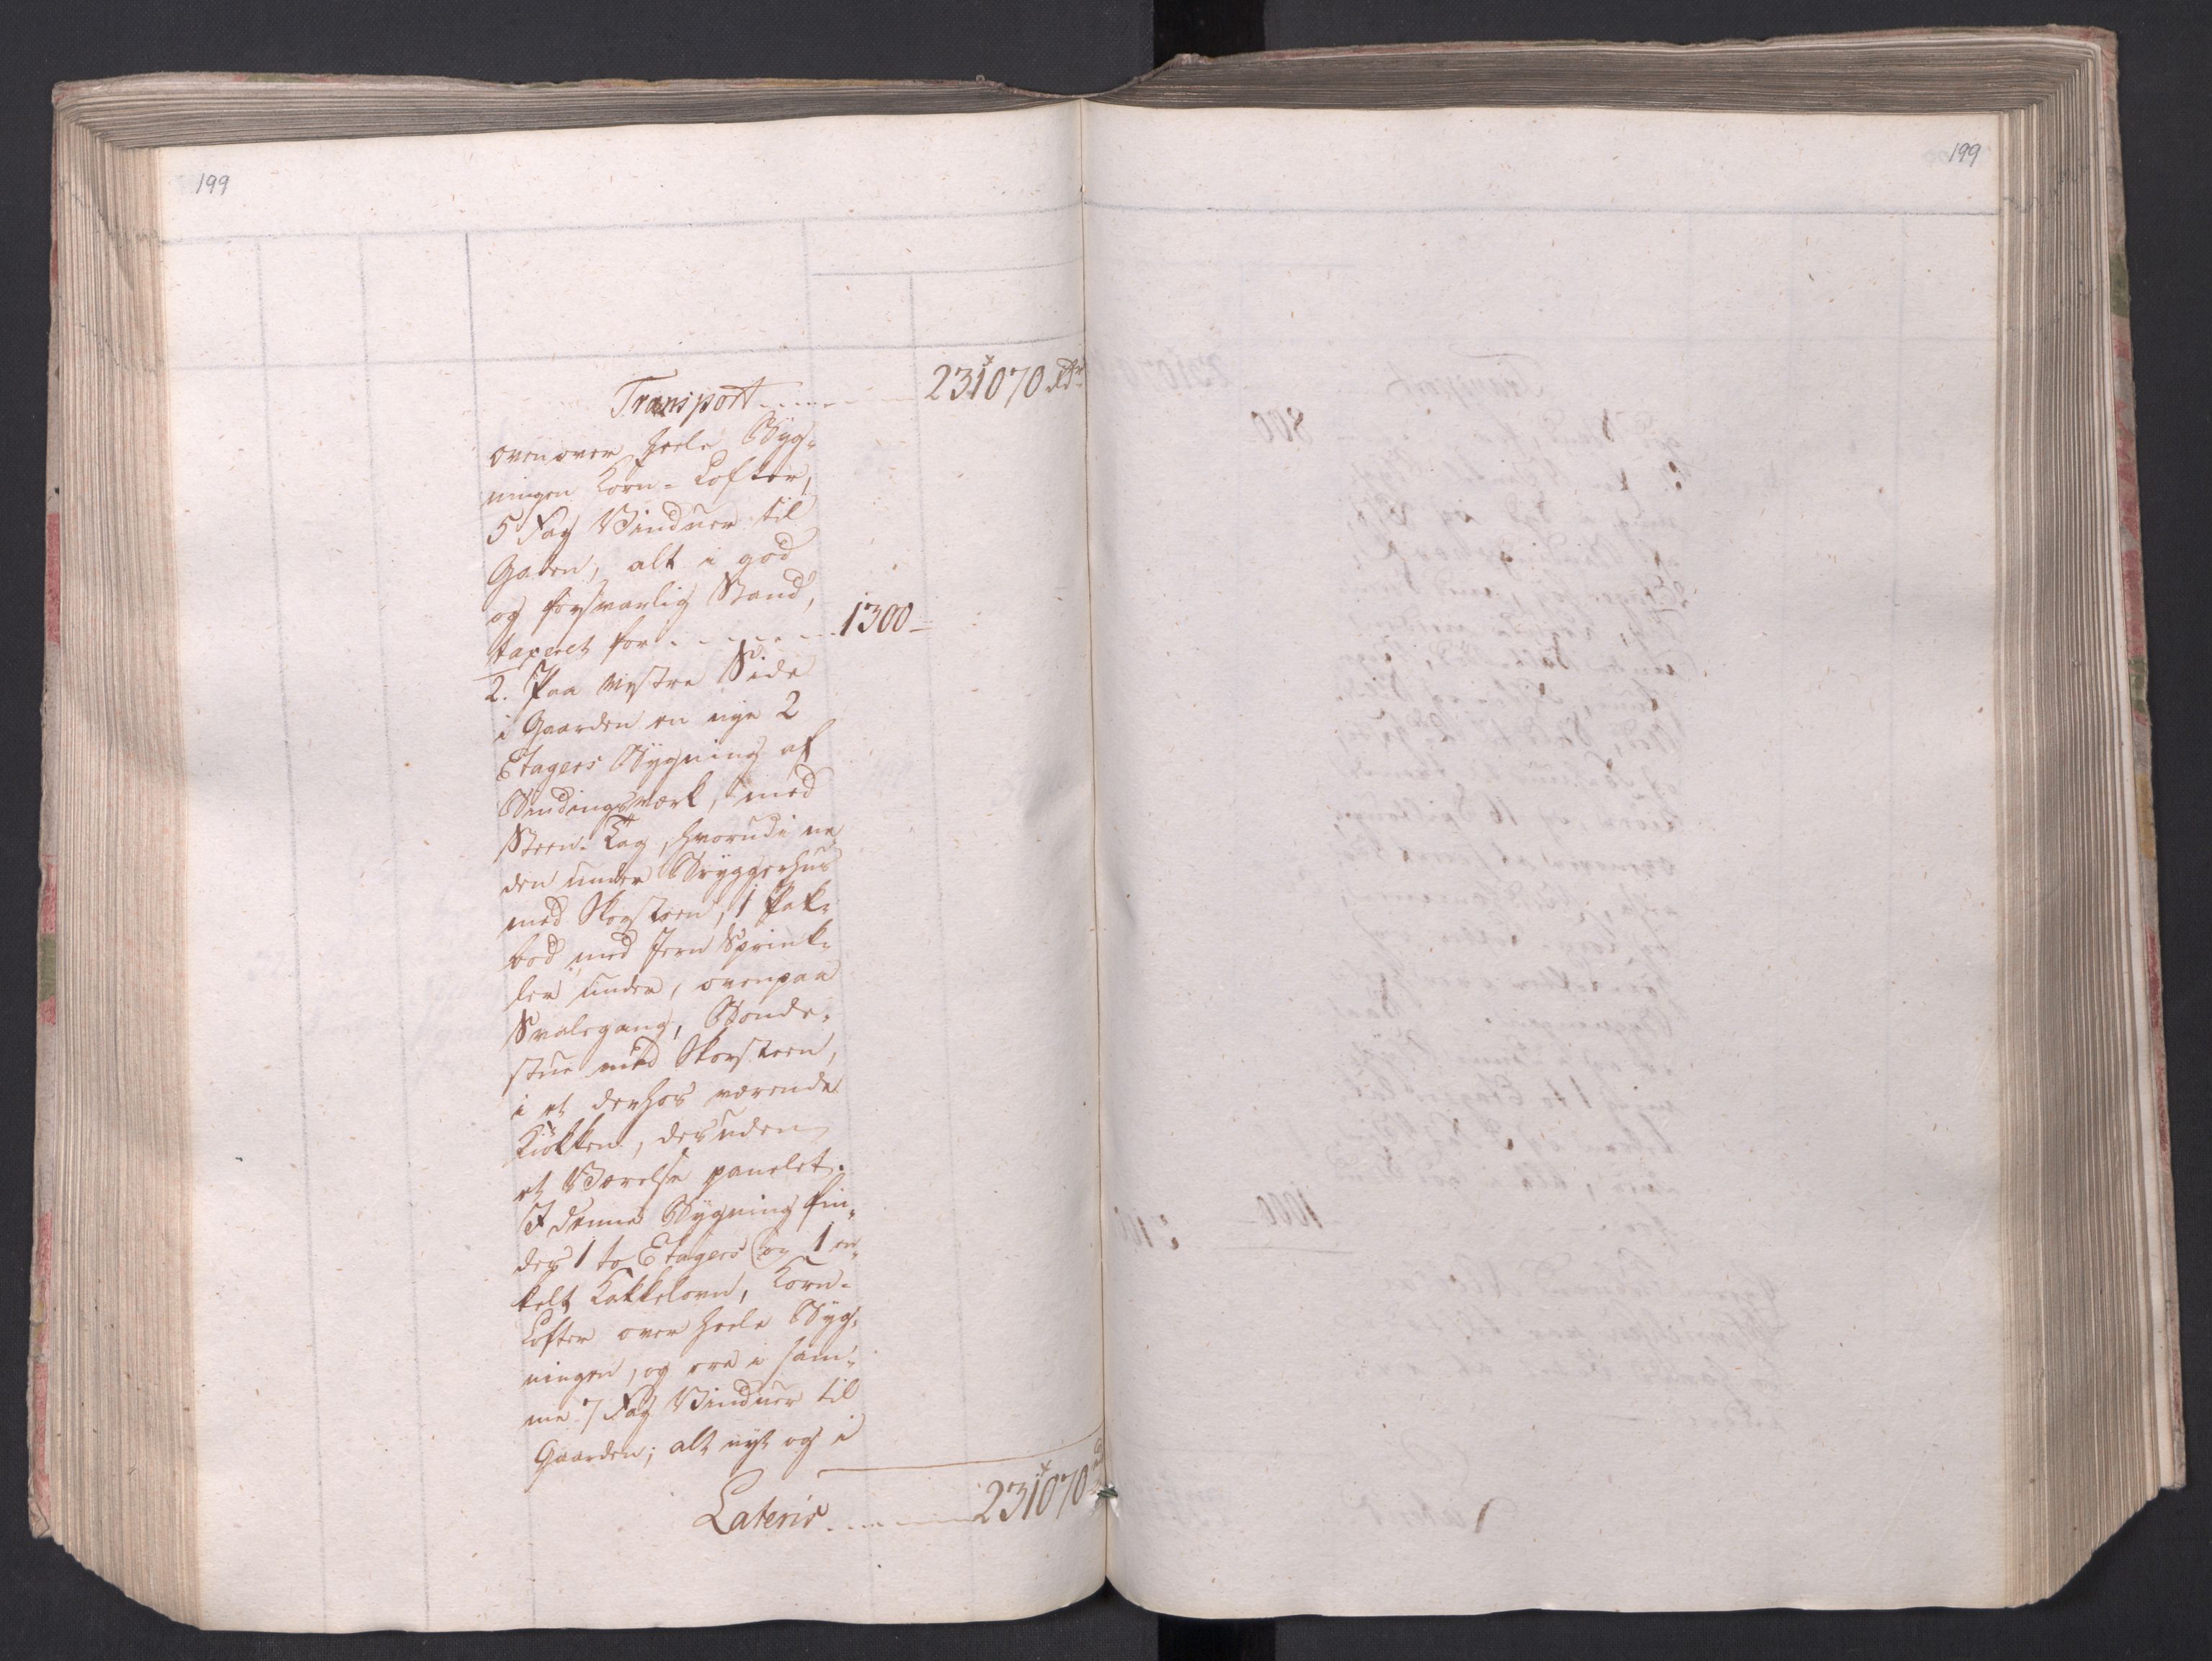 199
199
Transport 231070 Rdr
ovenover heele Byg-
ningen Korn-Lofter,
5 Fag Vinduer til
Gaden, alt i god
og forsvarlig Stand,
taxeret for 1300
2. Paa vestre Side
i Gaarden en nye 2
Etagers Bygning af
Bindingsværk, med
Steen-Tag, hvorudi ne
den under Bryggerhus
med Skorsteen, 1 Pak-
bod med Jern Sprink-
ler under, ovenpaa
Svalegang, Bonde-
stue med Skorsteen,
i et derhos værende
Kiökken, desuden
et Værelse panelet.
I denne Bygning fin-
des 1 to Etagers og 1 en-
kelt Kakkelovn, Korn-
Lofter over heele Byg-
ningen, og ere i sam-
me 7 Fag Vinduer til
Gaarden; alt nyt og i
Lateris 231070